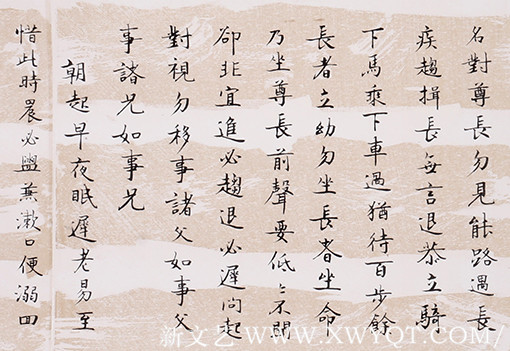 名對尊長勿見能路遇長
疾趨揖長無言退恭立騎
下馬乘下車過猶待百步餘
長者立幼勿坐長者坐命
乃坐尊長前聲要低々不聞
卻非宜進必趨退必遲問起
對視勿移事諸父如事父
事諸兄如事兄
朝起早夜眠遲老易至
惜此時晨必盥兼漱口便溺回
新文艺 WWW.XWYQT.COM/